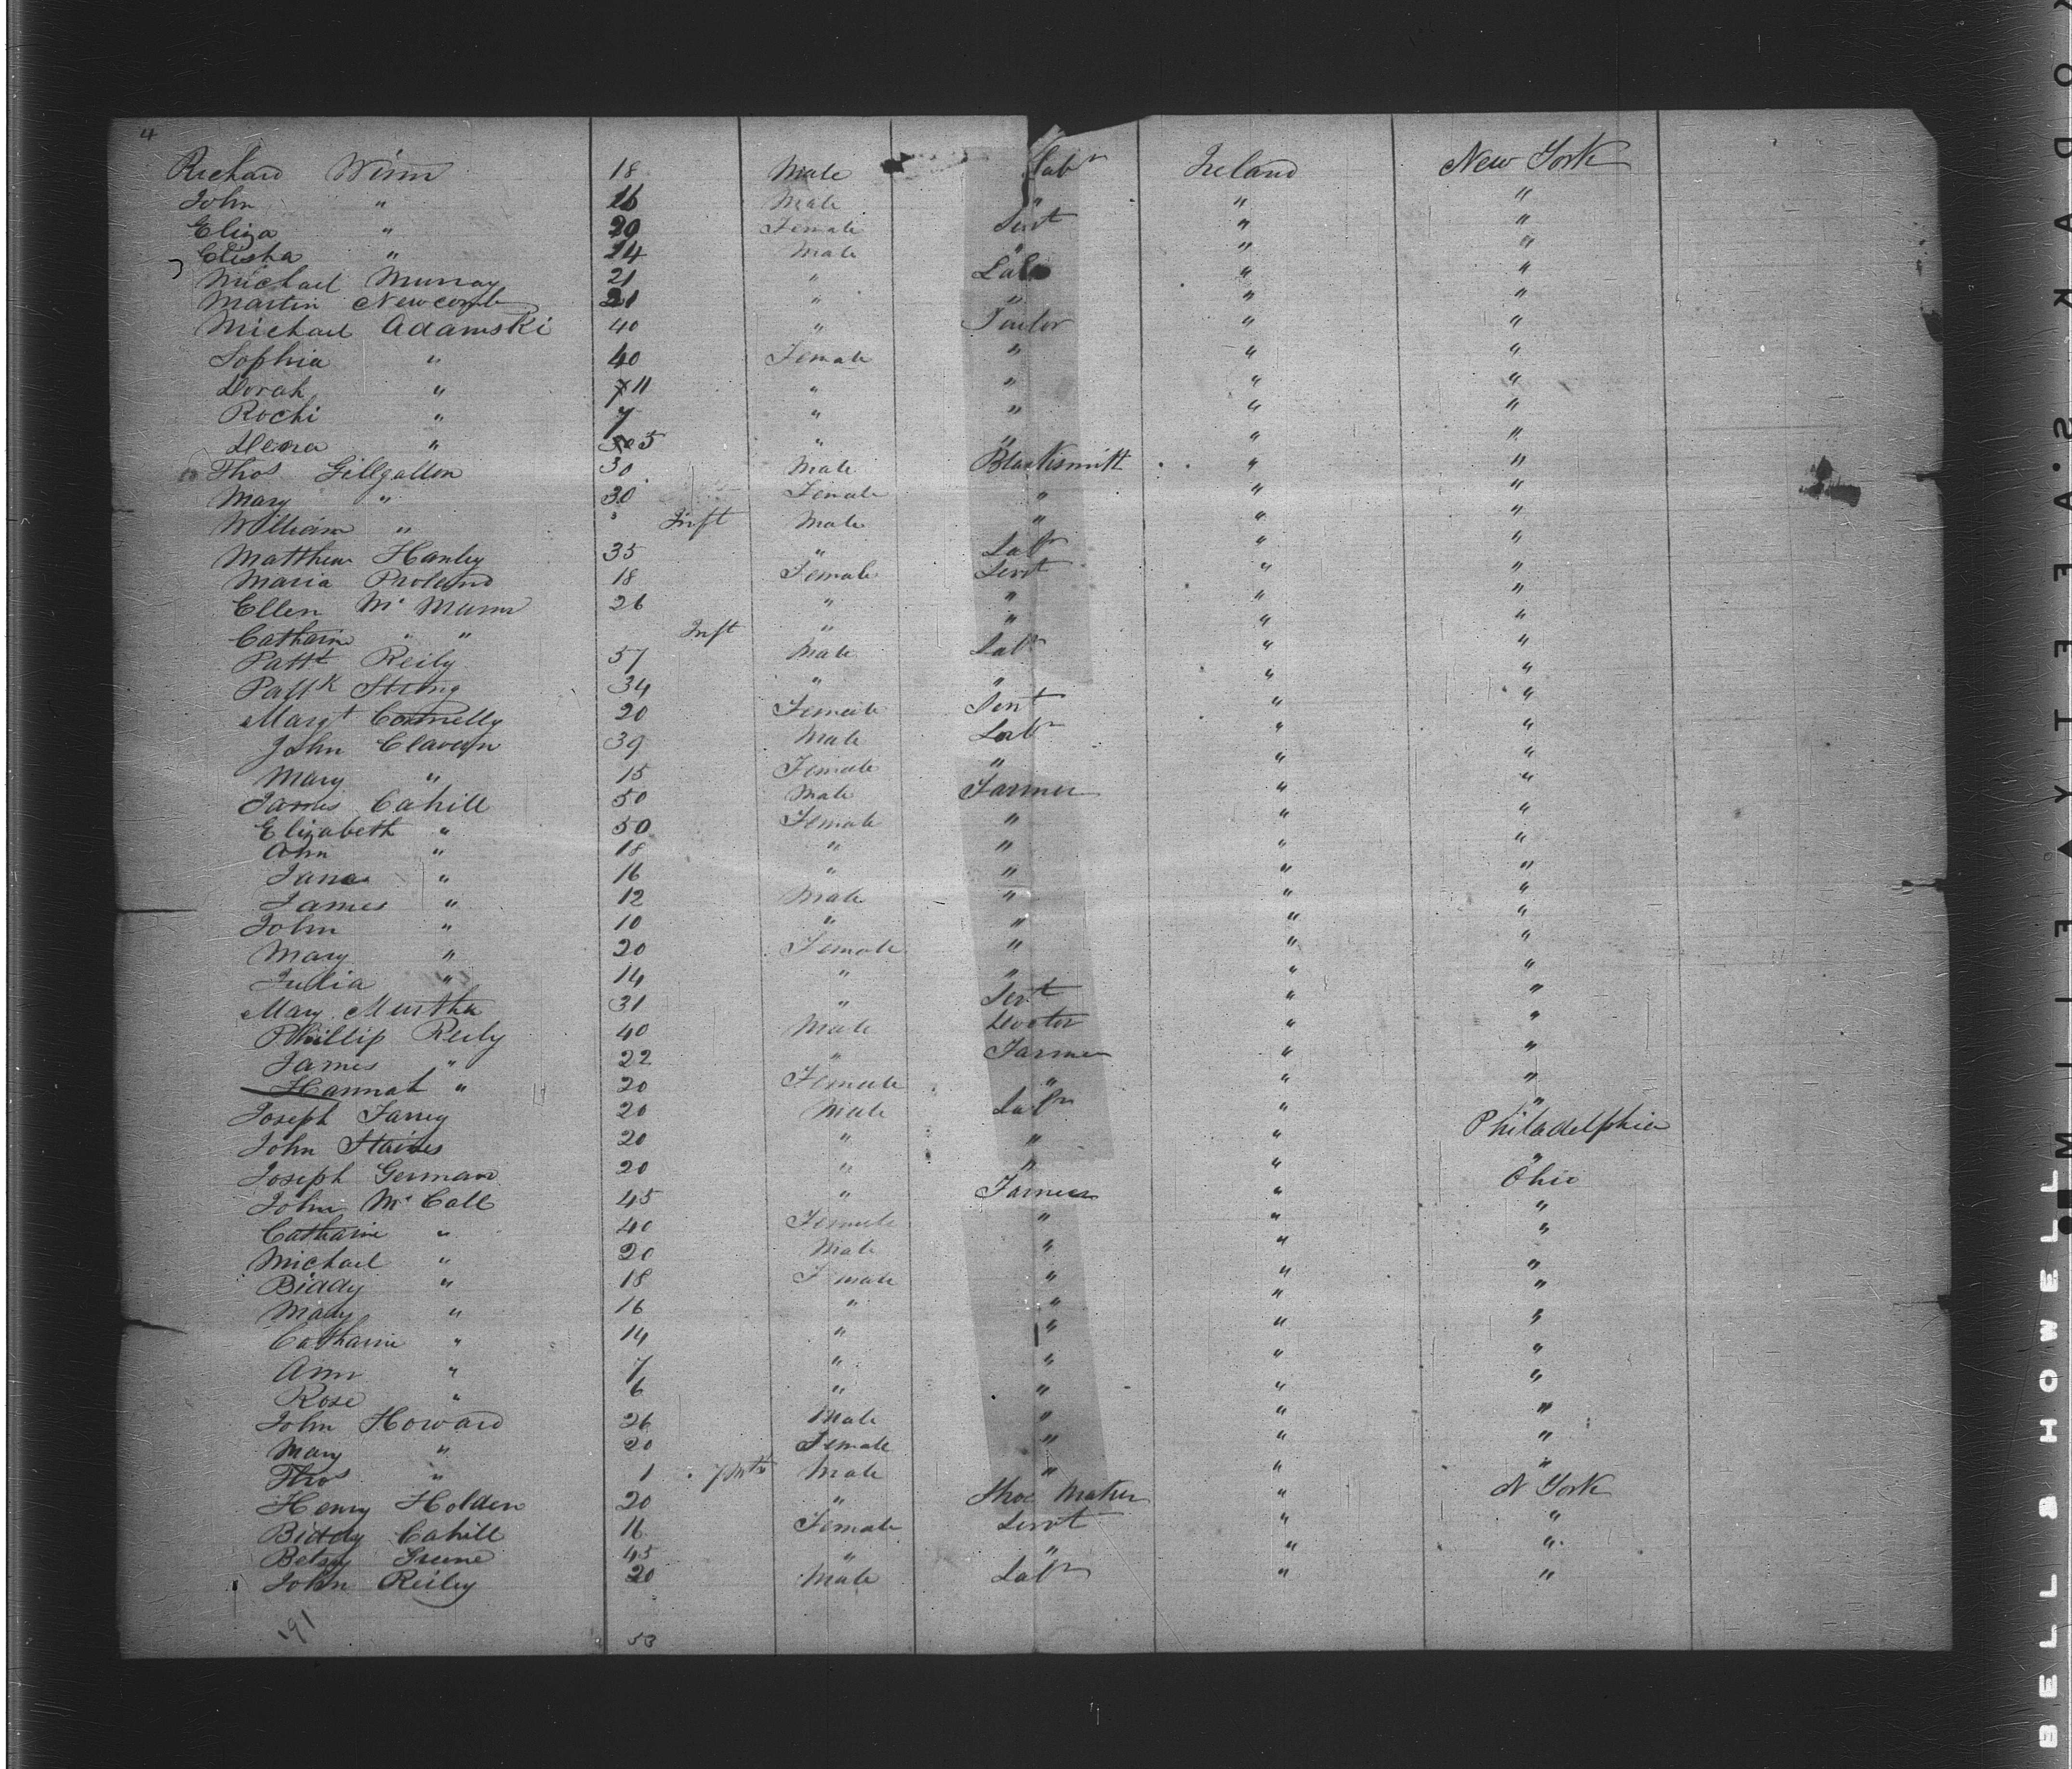 4
Richard Winn 18 Male Labr Ireland New York
John " 16 Male " " "
Eliza " 20 Female Sert " "
Elisha " 24 Male " " "
Michael Murray 21 " Lab " "
Martin Newcomb 21 " " " "
Michael Adamski 40 " Tailor " "
Sophia " 40 Female " " "
Dorah " 11 " " " "
Rochi " 7 " " " "
Dena " 5 " " " "
Thos Gillgallon 30 Male Blacksmith " "
Mary " 30 Female " " "
William " Inft Male " " "
Matthew Hanley 35 " Labr " "
Maria Proland 18 Female Servt " "
Ellen Mc Munn 26 " " " "
Catharin " " Inft " " " "
Patt Reily 57 Male Labr " "
Pattk Strong 34 " " " "
Margt Connelly 20 Female Sert " "
John Clavern 39 Male Labr " "
Mary " 15 Female " " "
James Cahill 50 Male Farmer " "
Elizabeth " 50 Female " " "
Ann " 18 " " " "
Jane " 16 " " " "
James " 12 Male " " "
John " 10 " " " "
Mary " 20 Female " " "
Julia " 14 " " " "
Mary Murtha 31 " Servt " "
Phillip Reily 40 Male Doctor " "
James " 22 " Farmer " "
Hannah " 20 Female " " "
Joseph Farrey 20 Male Labr " "
John Staines 20 " " " Philadelphia
Joseph German 20 " " " "
John Mc Call 45 " Farmer " Ohio
Catharine " 40 Female " " "
Michael " 20 Male " " "
Biddy " 18 Female " " "
Mady " 16 " " " "
Catharine " 14 " " " "
Ann " 7 " " " "
Rose " 6 " " " "
John Howard 26 Male " " "
Mary " 20 Female " " "
Thos " 1 7 Mths Male " " "
Henry Holden 20 " Shoe Maker " N York
Biddy Cahill 16 Female Servt " "
Betsy Greene 45 " " " "
John Reiley 20 Male Labr " "
191 53
KODAK SAFETY FILM
BELL & HOWELL